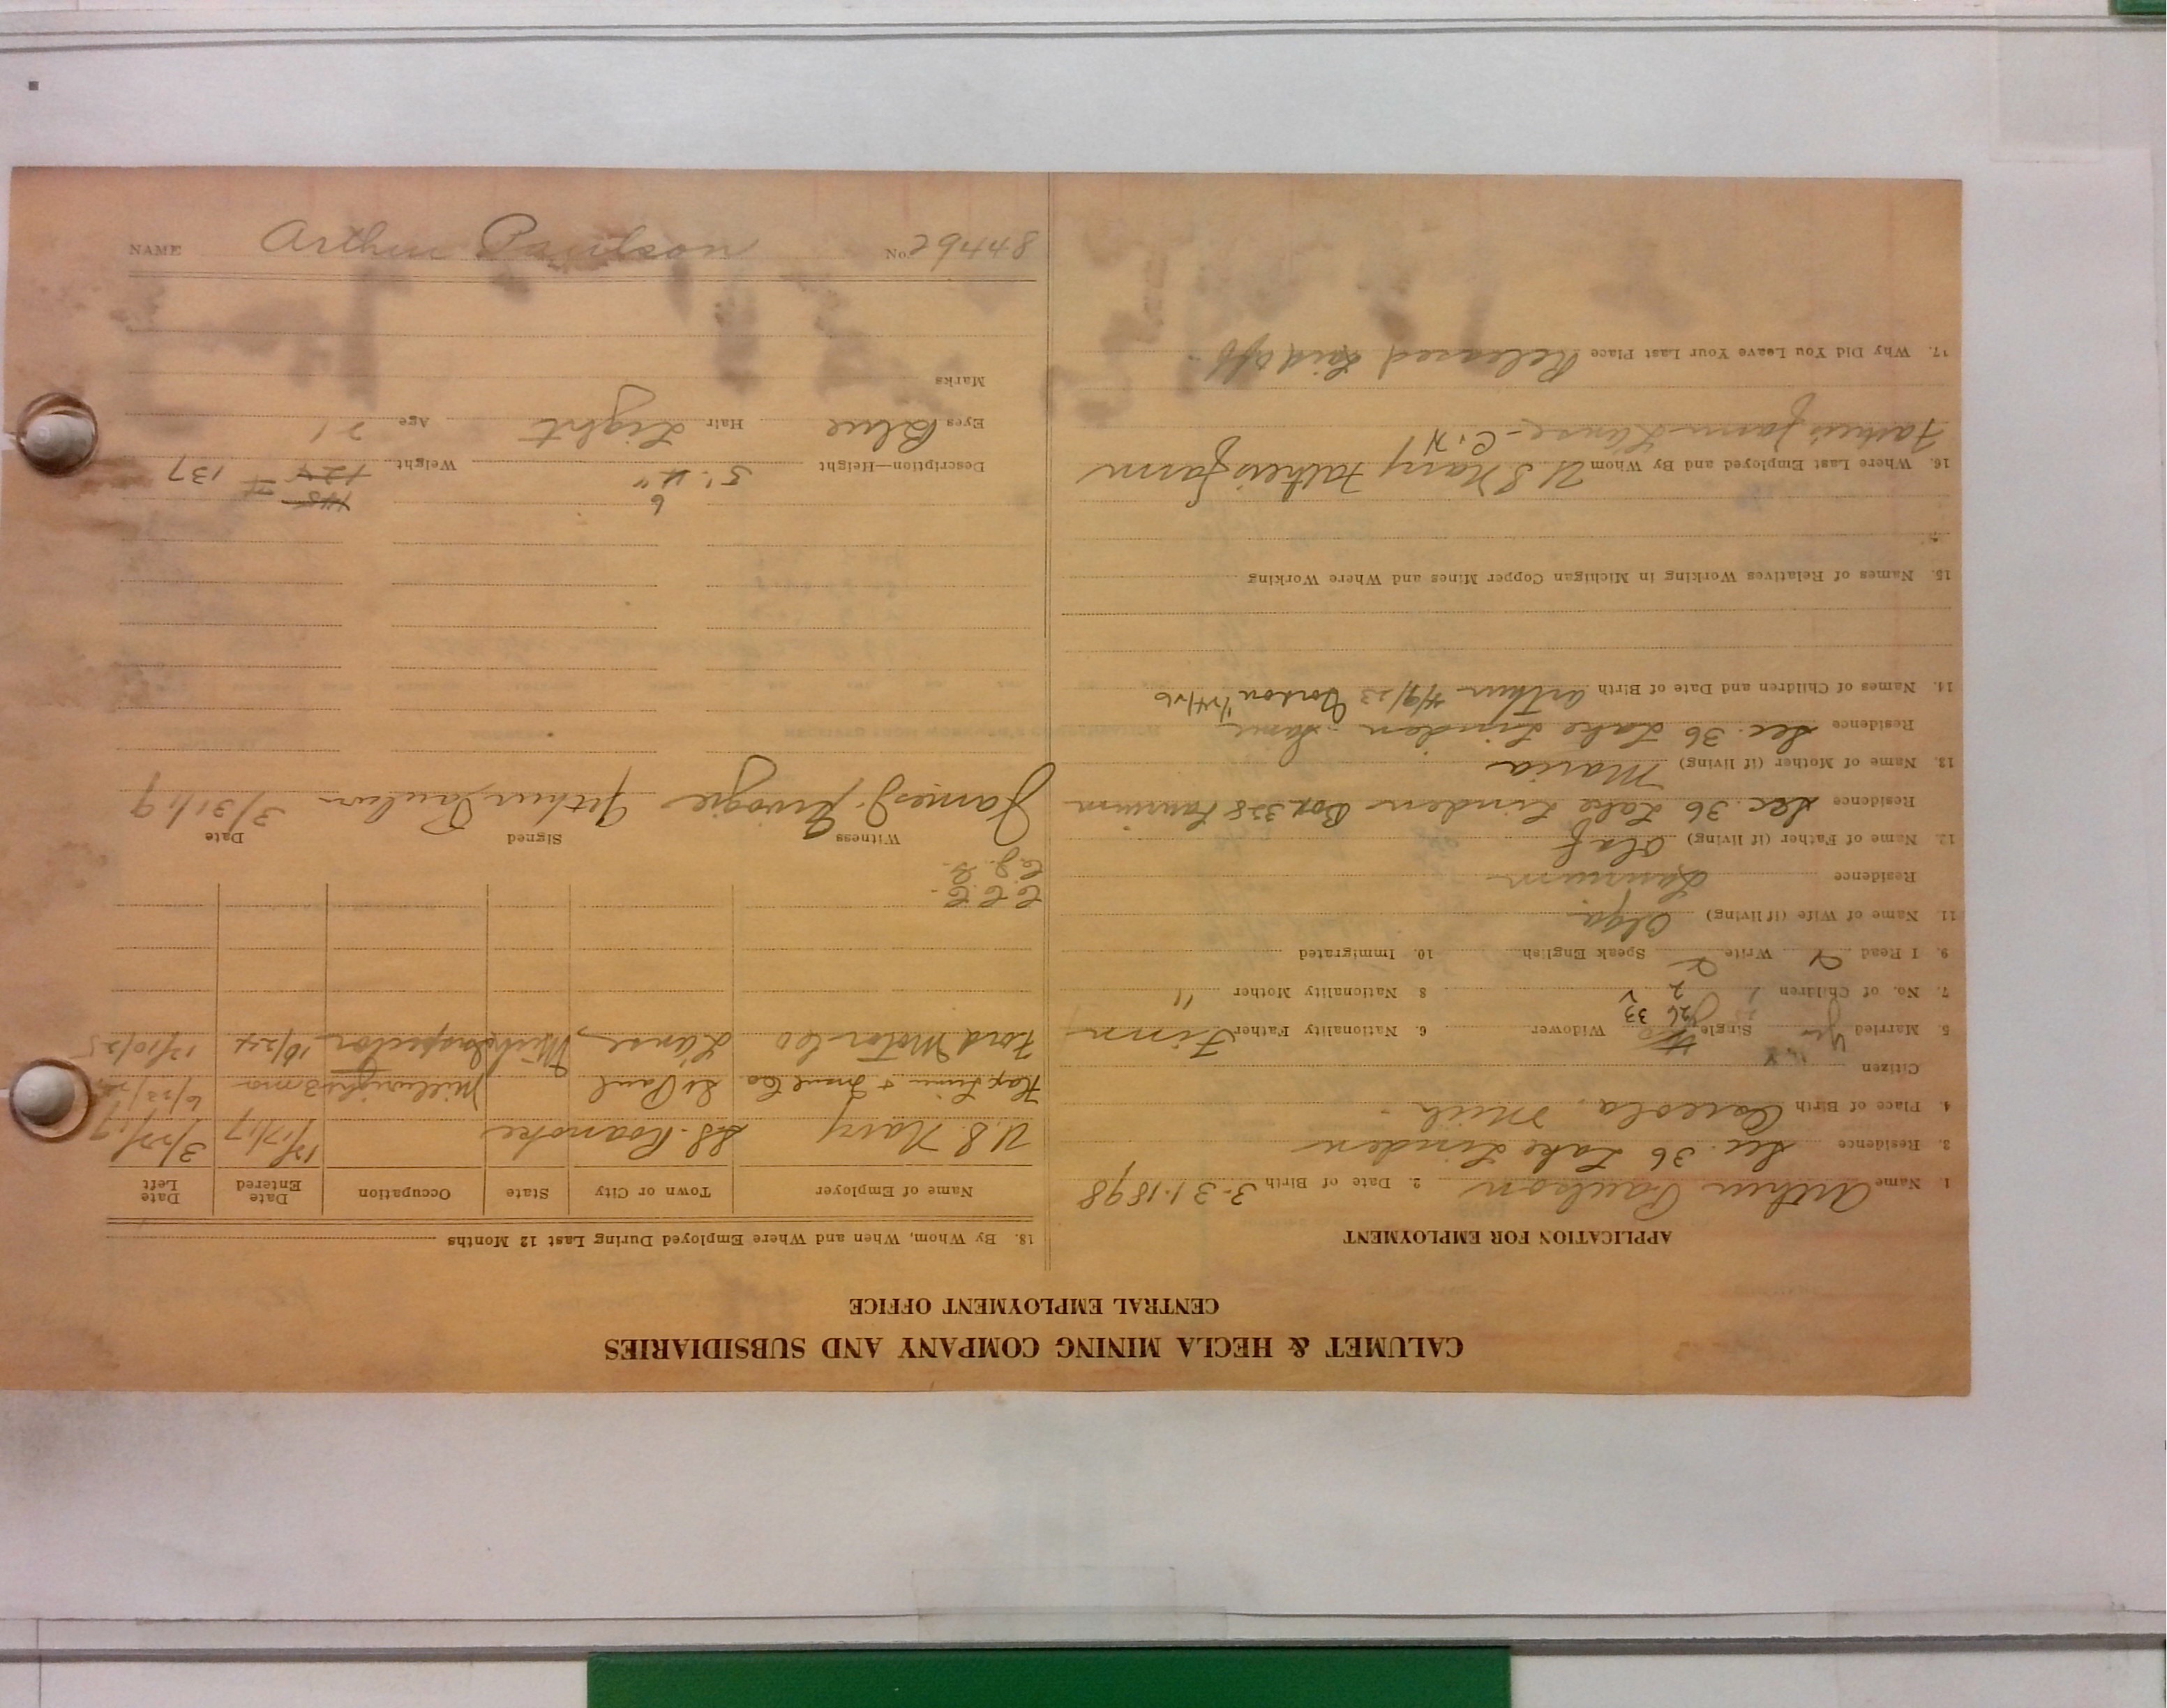 CALUMET & HECLA MINING COMPANY AND SUBSIDIARIES
CENTRAL EMPLOYMENT OFFICE
APPLICATION FOR EMPLOYMENT
1. Name Arthur Paulson 2. Date of Birth 3-31-1898
3. Residence Sec. 36 Lake Linden
4. Place of Birth Osceola, Mich.
Citizen
5. Married Yes Single Widower 6. Nationality Father Finn
7. No. of Children 2 8 Nationality Mother "
9. I Read Write Speak English 10. Immigrated
11. Name of Wife (if living) Olga
Residence Laurium
12. Name of Father (if living) Olaf
Residence Sec. 36 Lake Linden Box 338 Laurium
13. Name of Mother (if living) Maria
Residence Sec. 36 Lake Linden - Same
14. Names of Children and Date of Birth Arthur 4/9/23 Gordon 1/24/26
15. Names of Relatives Working in Michigan Copper Mines and Where Working
16. Where Last Employed and By Whom U S Navy Fathers farm
Fathers farm - Lanse - C.H
17. Why Did You Leave Your Last Place Released Laid off
18. By Whom, When and Where Employed During Last 12 Months
Name of Employer Town or City State Occupation Date Entered Date Left
U.S. Navy SS. Roanoke 12/17/17
St Paul Millwright 3 mo
Ford Motor Co Lanse, Mich Inspector 10/24 12/10/25
Witness Signed Date
James J. Arthur Paulson 3/31/19
6
145
Description—Height 5' 4" Weight 124 137
Eyes Blue Hair Light Age 21
Marks
NAME Arthur Paulson No. 29448